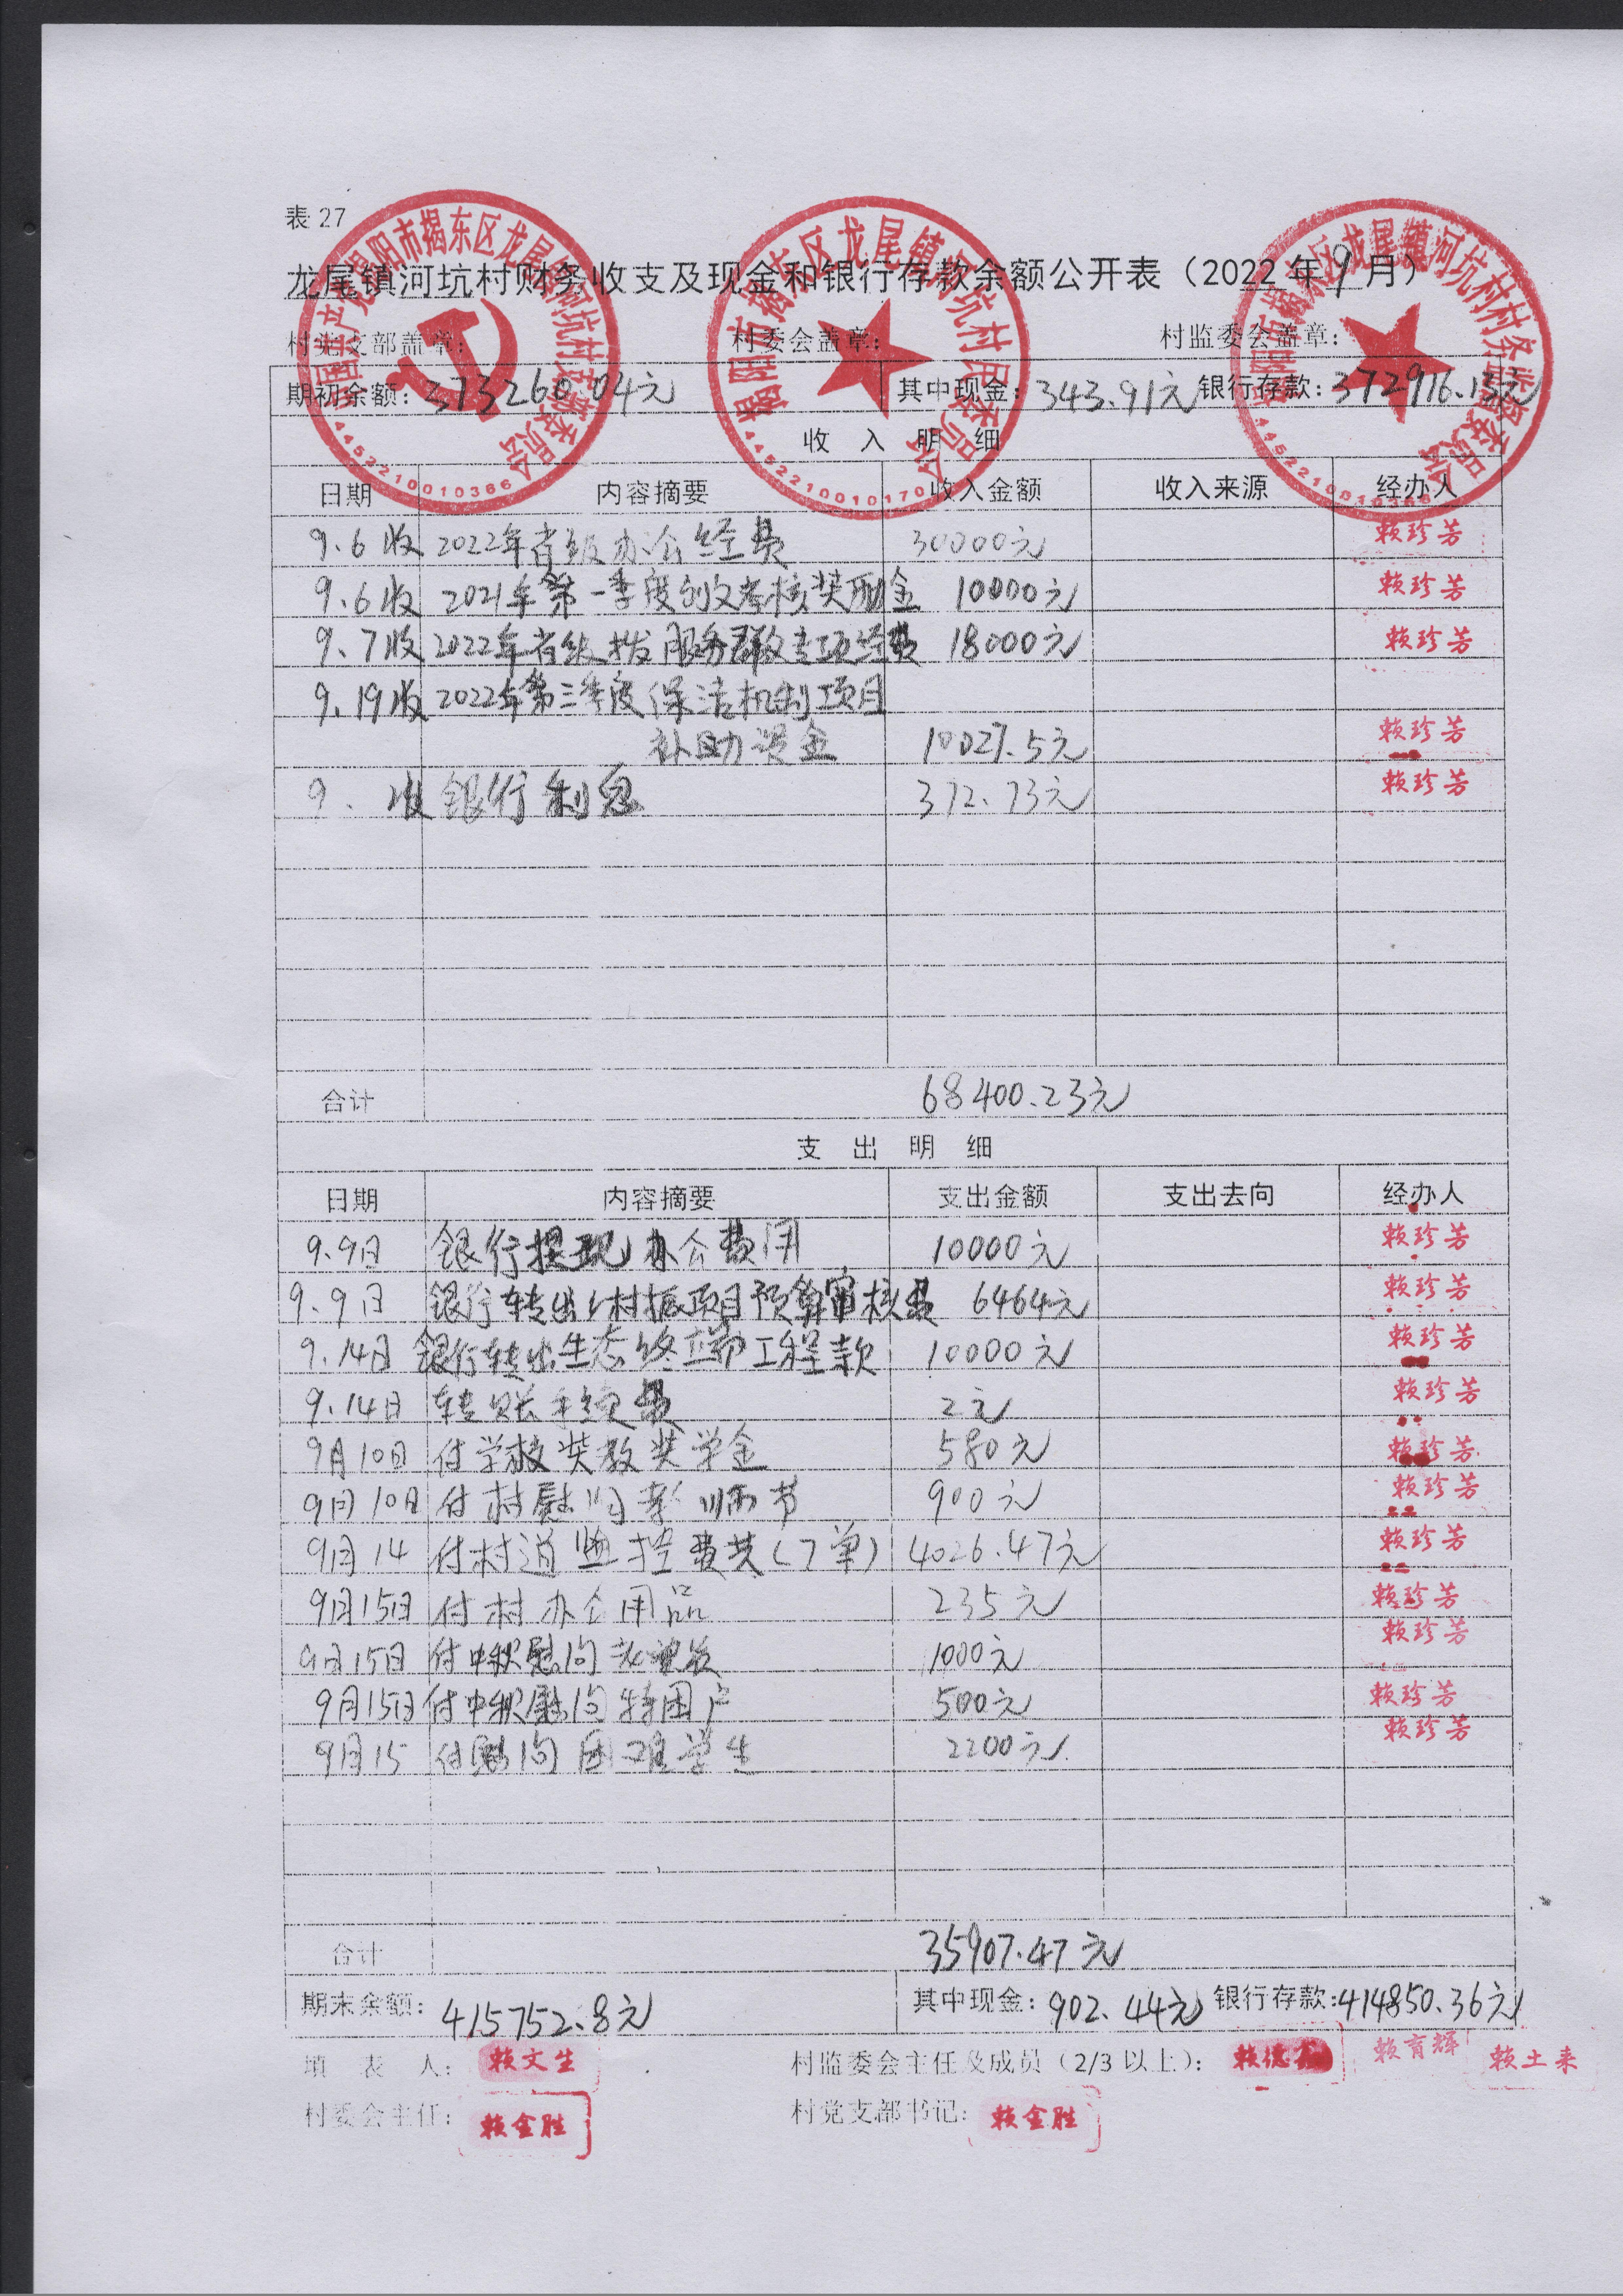 表 27
龙尾镇河坑村财务收支及现金和银行存款余额公开表（2022 年 9 月）
村党支部盖章： 村委会盖章： 村监委会盖章：
期初余额：373260.04元 其中现金：343.91元 银行存款：372916.13元
收 入 明 细
日期 内容摘要 收入金额 收入来源 经办人
9.6收 2022年省级办公经费 30000元 赖珍芳
9.6收 2021年第一季度创文考核奖励金 10000元 赖珍芳
9.7收 2022年省级拨服务群众专项经费 18000元 赖珍芳
9.19收 2022年第三季度保洁机制项目
补助资金 10027.5元 赖珍芳
9. 收 银行利息 372.73元 赖珍芳
合计 68400.23元
支 出 明 细
日期 内容摘要 支出金额 支出去向 经办人
9.9日 银行提现办公费用 10000元 赖珍芳
9.9日 银行转出乡村振项目预算审核费 6464元 赖珍芳
9.14日 银行转出生态终端工程款 10000元 赖珍芳
9.14日 转账手续费 2元 赖珍芳
9月10日 付学校奖教奖学金 580元 赖珍芳
9月10日 付村慰问教师节 900元 赖珍芳
9月14 付村道监控费共(7单) 4026.47元 赖珍芳
9月15日 付村办公用品 235元 赖珍芳
9月15日 付中秋慰问老党员 1000元 赖珍芳
9月15日 付中秋慰问特困户 500元 赖珍芳
9月15 付慰问困难学生 2200元 赖珍芳
合计 35907.47元
期末余额：415752.8元 其中现金：902.44元 银行存款：414850.36元
填 表 人： 赖文生 村监委会主任及成员（2/3 以上）： 赖德 赖育辉 赖土来
村委会主任： 赖金胜 村党支部书记： 赖金胜